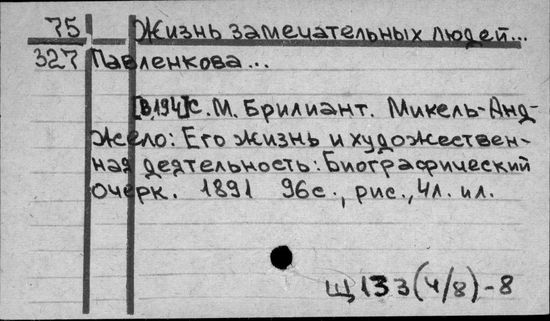 75 Жизнь замечательных людей...
327 Павленкова...
[В194]С. М. Брилиант. Микель-Анд-
жело: Его жизнь и художествен-
ная деятельность: Биографический
очерк. 1891 96с., рис., 4л. ил.
Щ133(4/8)-8